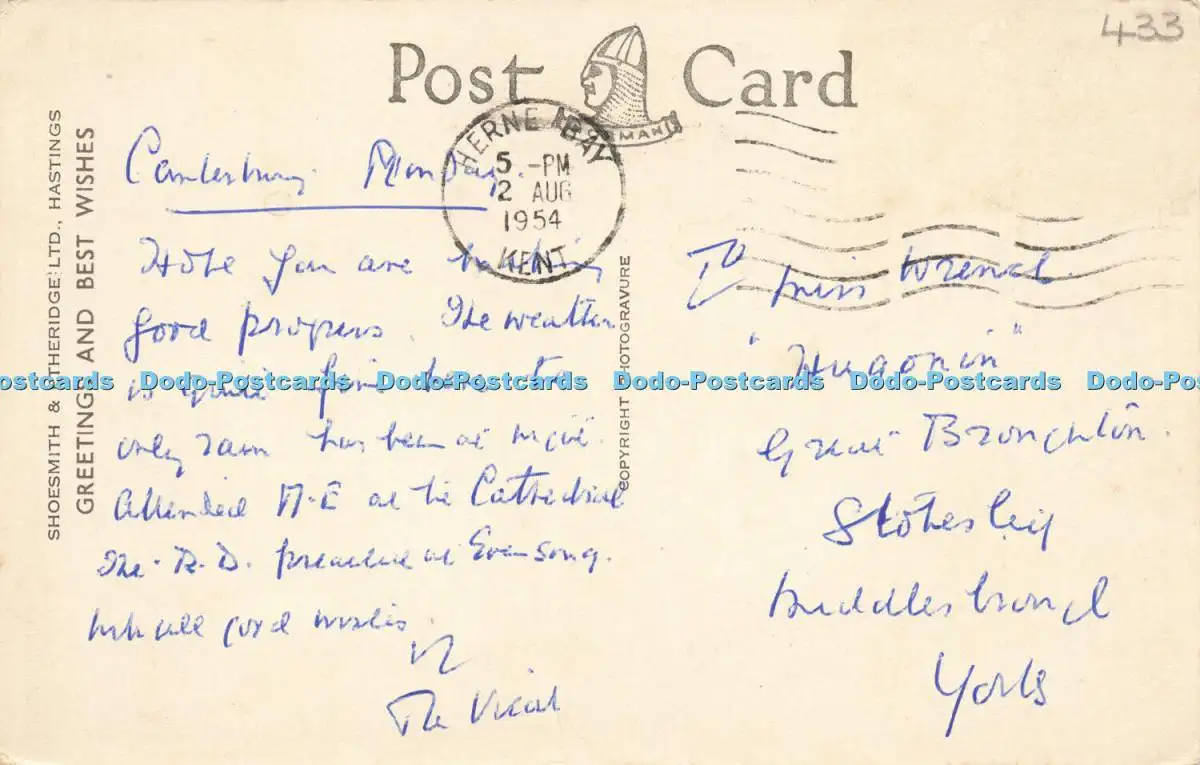 433
Post Card
NORMAN
HERNE BAY
5 -PM
2 AUG
1954
KENT
SHOESMITH & ETHERIDGE LTD., HASTINGS
GREETINGS AND BEST WISHES
COPYRIGHT PHOTOGRAVURE
Canterbury. Monday.
Hope you are making
good progress. The weather
is quite fine here the
only rain has been at night.
Attended at the Cathedral
The R.D. preached at Evensong.
With all good wishes.
The Vicar
To Miss Wrench.
"Hugonin"
Great Broughton.
Stokesley
Middlesbrough
Yorks
Dodo-Postcards Dodo-Postcards Dodo-Postcards Dodo-Postcards Dodo-Postcards Dodo-Postcards